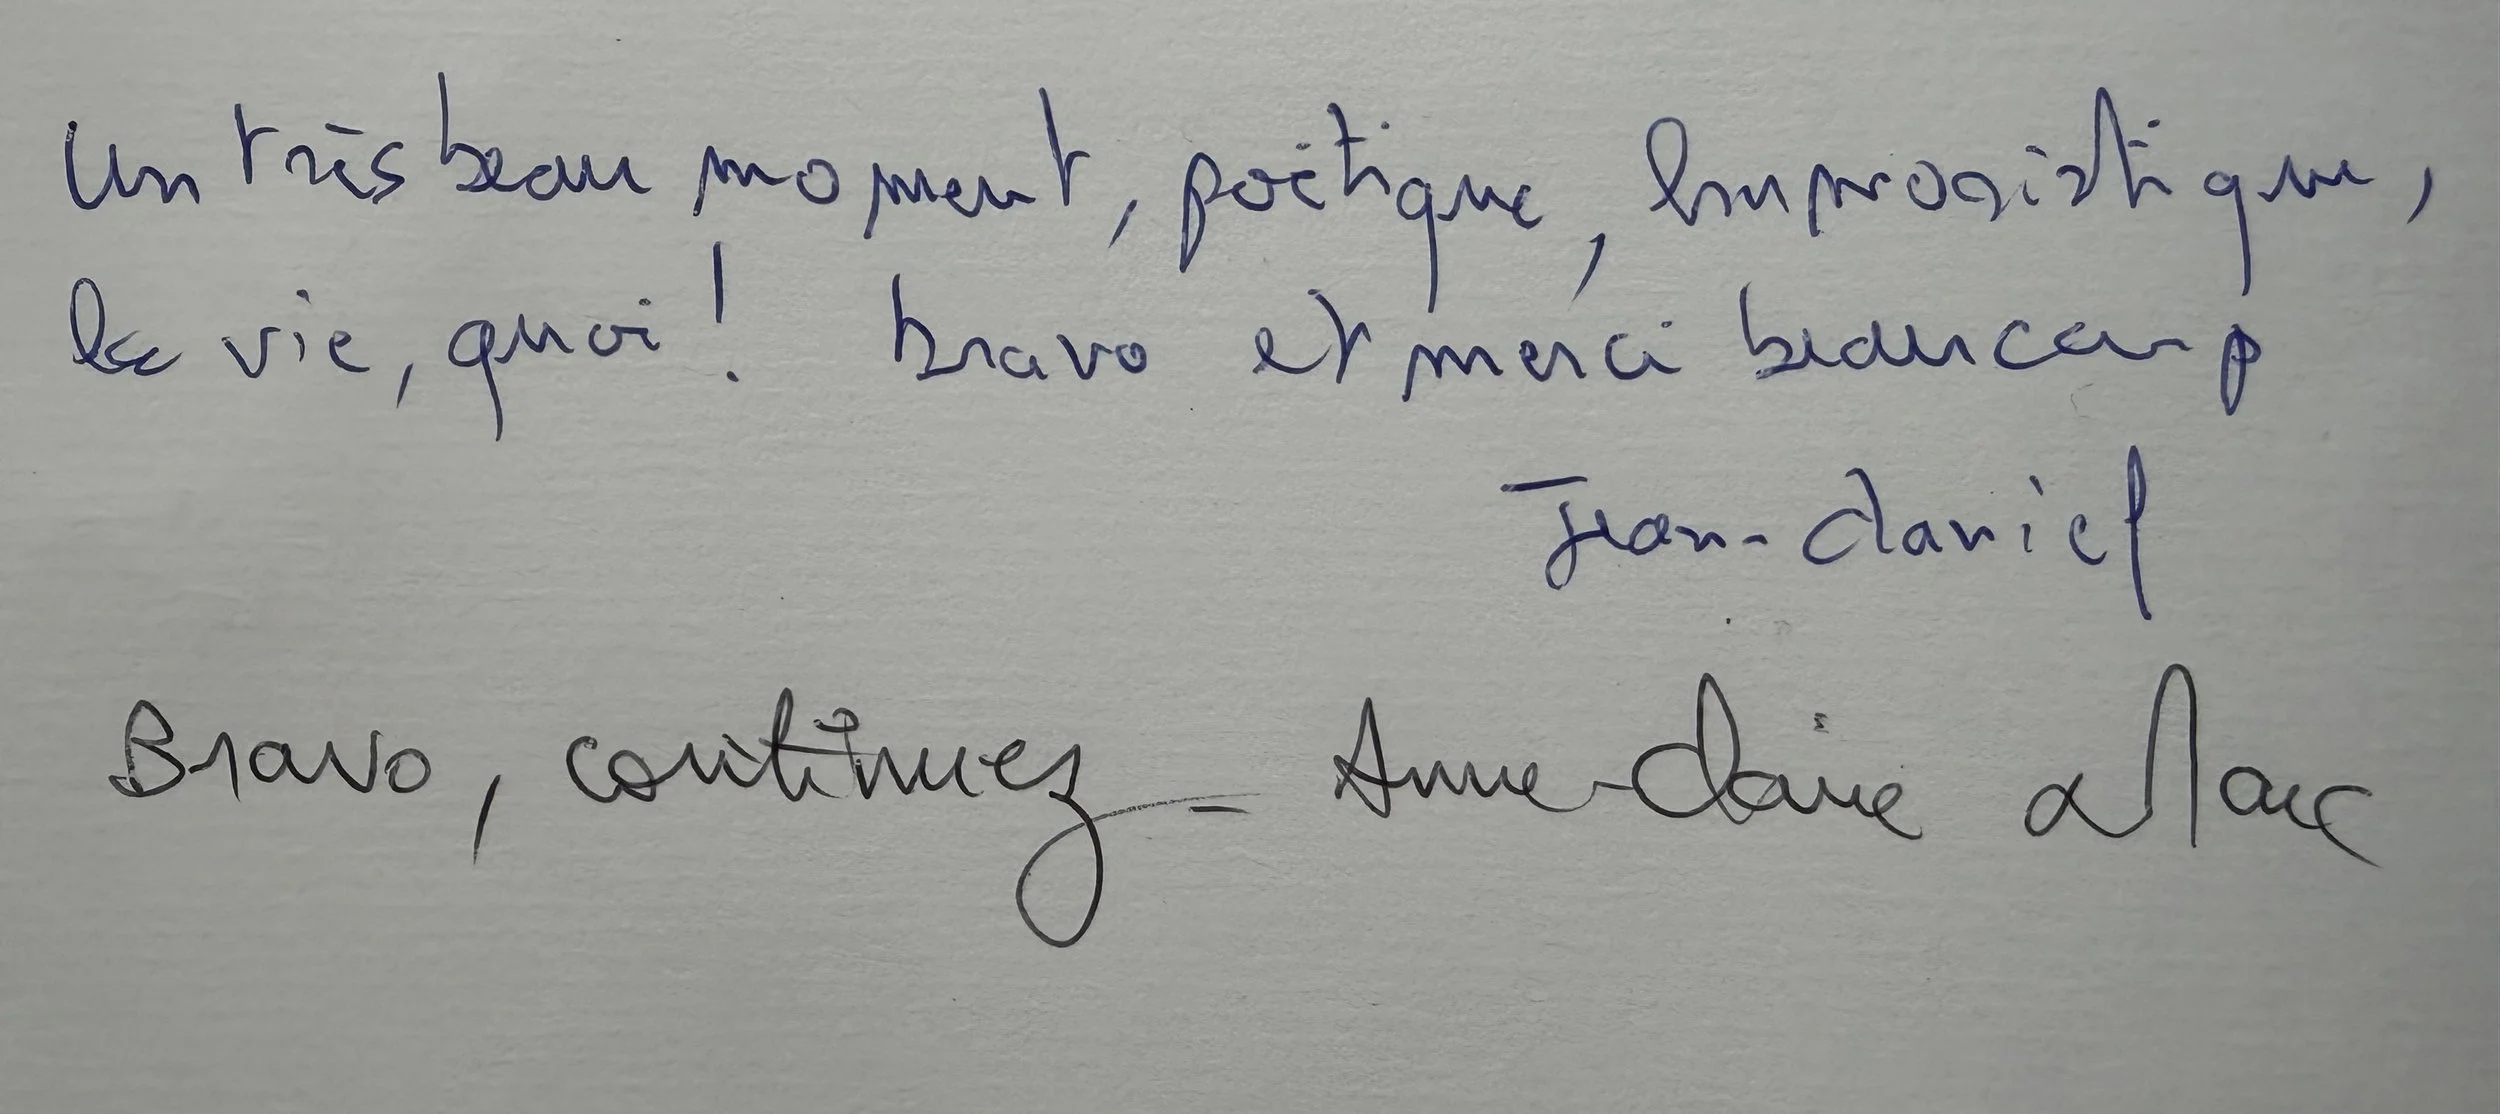 Un très beau moment, poétique, humoristique,
la vie, quoi ! bravo et merci beaucoup
Jean-daniel
Bravo, continuez - Anne-Claire & Marc